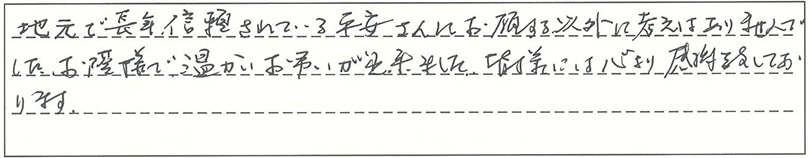 地元で長年信頼されている平安さんにお願する以外に考えはありませんで
した。お陰様で温かいお弔いが出来ました。皆様には心より感謝致してお
ります。